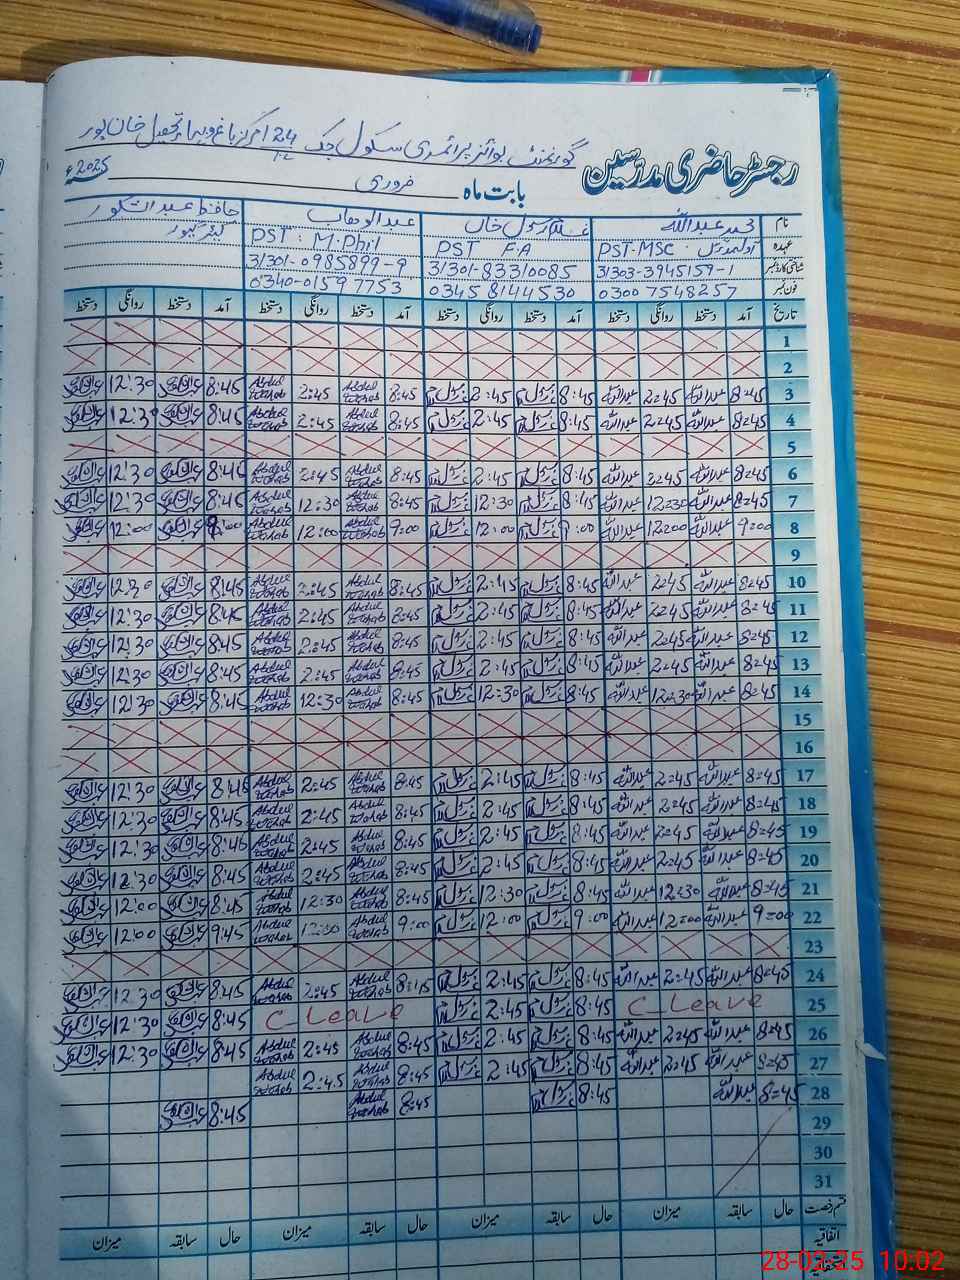 گورنمنٹ بوائز پرائمری سکول چک 24 مرکز باغ و بہار تحصیل خان پور
رجسٹر حاضری مدرسین
بابت ماہ فروری 2025ء
نام محمد عبداللہ غلام رسول خاں عبدالوھاب حافظ عبدالشکور
عہدہ PST-MSc PST F.A PST: M.Phil
شناختی کارڈ نمبر 31303-3945159-1 31301-83310085 31301-0985899-9
فون نمبر 0300 7548257 0345 8144530 0340-0159 7753
تاریخ آمد دستخط روانگی دستخط آمد دستخط روانگی دستخط آمد دستخط روانگی دستخط آمد دستخط روانگی دستخط
1
2
3 8=45 عبداللہ 2=45 عبداللہ 8:45 2:45 8:45 Abdul Wahab 2:45 Abdul Wahab 8:45 12:30
4 8=45 عبداللہ 2=45 عبداللہ 8:45 2:45 8:45 Abdul Wahab 2:45 Abdul Wahab 8:45 12:3
5
6 8=45 عبداللہ 2=45 عبداللہ 8:45 2:45 8:45 Abdul Wahab 2:45 Abdul Wahab 8:45 12:30
7 8=45 عبداللہ 12=30 عبداللہ 8:45 12:30 8:45 Abdul Wahab 12:30 Abdul Wahab 8:45 12:30
8 9=00 عبداللہ 12=00 عبداللہ 9:00 12:00 9:00 Abdul Wahab 12:00 Abdul Wahab 12:00
9
10 8=45 عبداللہ 2=45 عبداللہ 8:45 2:45 8:45 Abdul Wahab 2:45 Abdul Wahab 8:45 12:30
11 8=45 عبداللہ 2=45 عبداللہ 8:45 2:45 8:45 Abdul Wahab 2:45 Abdul Wahab 8:45 12:30
12 8=45 عبداللہ 2=45 عبداللہ 8:45 2:45 8:45 Abdul Wahab 2:45 Abdul Wahab 8:45 12:30
13 8=45 عبداللہ 2=45 عبداللہ 8:45 2:45 8:45 Abdul Wahab 2:45 Abdul Wahab 8:45 12:30
14 8=45 عبداللہ 12=30 عبداللہ 8:45 12:30 8:45 Abdul Wahab 12:30 Abdul Wahab 8:45 12:30
15
16
17 8=45 عبداللہ 2=45 عبداللہ 8:45 2:45 8:45 Abdul Wahab 2:45 Abdul Wahab 8:45 12:30
18 8=45 عبداللہ 2=45 عبداللہ 8:45 2:45 8:45 Abdul Wahab 2:45 Abdul Wahab 8:45 12:30
19 8=45 عبداللہ 2=45 عبداللہ 8:45 2:45 8:45 Abdul Wahab 2:45 Abdul Wahab 8:45 12:30
20 8=45 عبداللہ 2=45 عبداللہ 8:45 2:45 8:45 Abdul Wahab 2:45 Abdul Wahab 8:45 12:30
21 8=45 عبداللہ 12=30 عبداللہ 8:45 12:30 8:45 Abdul Wahab 12:30 Abdul Wahab 8:45 12:00
22 9=00 عبداللہ 12=00 عبداللہ 9:00 12:00 9:00 Abdul Wahab 12:00 Abdul Wahab 9:45 12:00
23
24 8=45 عبداللہ 2=45 عبداللہ 8:45 2:45 8:45 Abdul Wahab 2:45 Abdul Wahab 8:45 12:30
25 C_Leave 8:45 2:45 C_Leave 8:45 12:30
26 8=45 عبداللہ 2=45 عبداللہ 8:45 2:45 8:45 Abdul Wahab 2:45 Abdul Wahab 8:45 12:30
27 8=45 عبداللہ 2=45 عبداللہ 8:45 2:45 8:45 Abdul Wahab 2:45 Abdul Wahab
28 8=45 عبداللہ 8:45 8:45 Abdul Wahab 8:45
29
30
31
قسم رخصت حال سابقہ میزان حال سابقہ میزان حال سابقہ میزان حال سابقہ میزان
اتفاقیہ
28-02-25 10:02